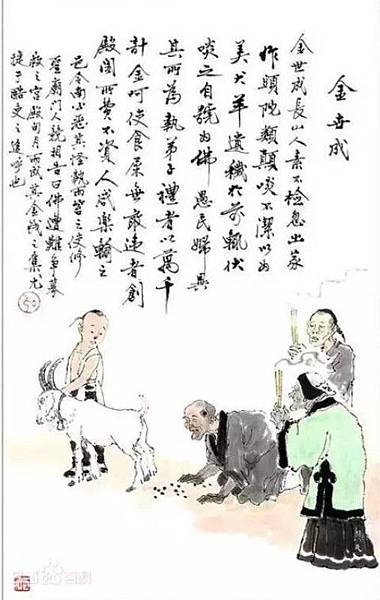 金世成
金世成長山人素不檢忽出家
作頭陀類顛啖不潔以為
美犬羊遺穢於前輒伏
啖之自號為佛愚民婦異
其所為執弟子禮者以萬千
計金呵使食屎無敢違者創
殿閣所費不資人咸樂輸之
邑令南公惡其怪執而笞之使修
聖廟門人競相告曰佛遭難爭募
救之宮殿旬月而成其金錢之集尤
捷于酷吏之追呼也
Baidu百科